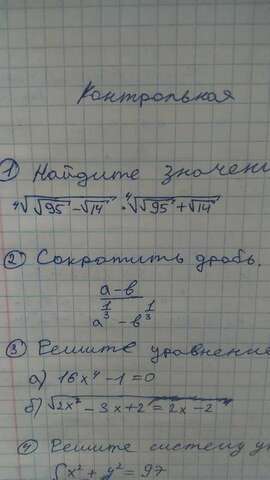 Контрольная
1 Найдите значени
⁴√(√95 - √14) · ⁴√(√95 + √14)
2 Сократить дробь.
a-b
a^(1/3) - b^(1/3)
3 Решите уравнение
a) 16x⁴ - 1 = 0
б) √(2x² - 3x + 2) = 2x - 2
4 Решите систему у
{x² + y² = 97